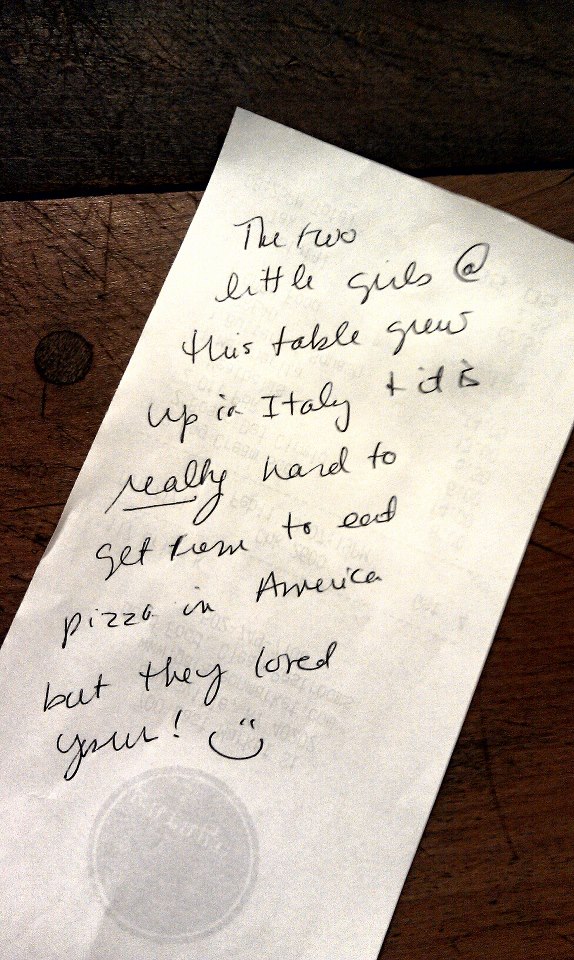 The two
little girls @
this table grew
up in Italy + it is
really hard to
get them to eat
pizza in America
but they loved
yours! :)